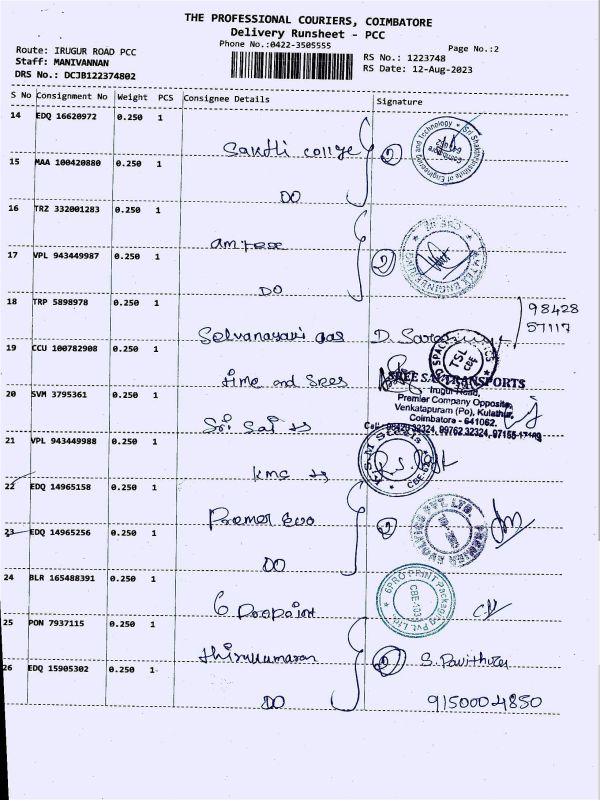 THE PROFESSIONAL COURIERS, COIMBATORE
Delivery Runsheet - PCC
Phone No.:0422-3505555
Page No.:2
Route: IRUGUR ROAD PCC
Staff: MANIVANNAN
DRS No.: DCJB122374802
RS No.: 1223748
RS Date: 12-Aug-2023
S No Consignment No Weight PCS Consignee Details Signature
14 EDQ 16620972 0.250 1
Sakthi college
15 MAA 100420880 0.250 1
DO
16 TRZ 332001283 0.250 1
17 VPL 943449987 0.250 1
DO
18 TRP 5898978 0.250 1
98428
57117
Selvanayaki gas D.
19 CCU 100782908 0.250 1
TSL
CBE
time and sees
SREE SAI TRANSPORTS
Irugur Road,
20 SVM 3795361 0.250 1
Premier Company Opposite,
Venkatapuram (Po), Kulathur,
Coimbatore - 641062.
Sri Sai ts
21 VPL 943449988 0.250 1
K.S.M
kmc ts
22 EDQ 14965158 0.250 1
Premer Evo
PREMIER EVOLVICS PVT. LTD.
23 EDQ 14965256 0.250 1
DO
24 BLR 165488391 0.250 1
6 Propoint
6PRO PRINT Packaging Pvt. Ltd.
25 PON 7937115 0.250 1
thirukumaran
S. Pavithra
26 EDQ 15905302 0.250 1
DO
9150004850